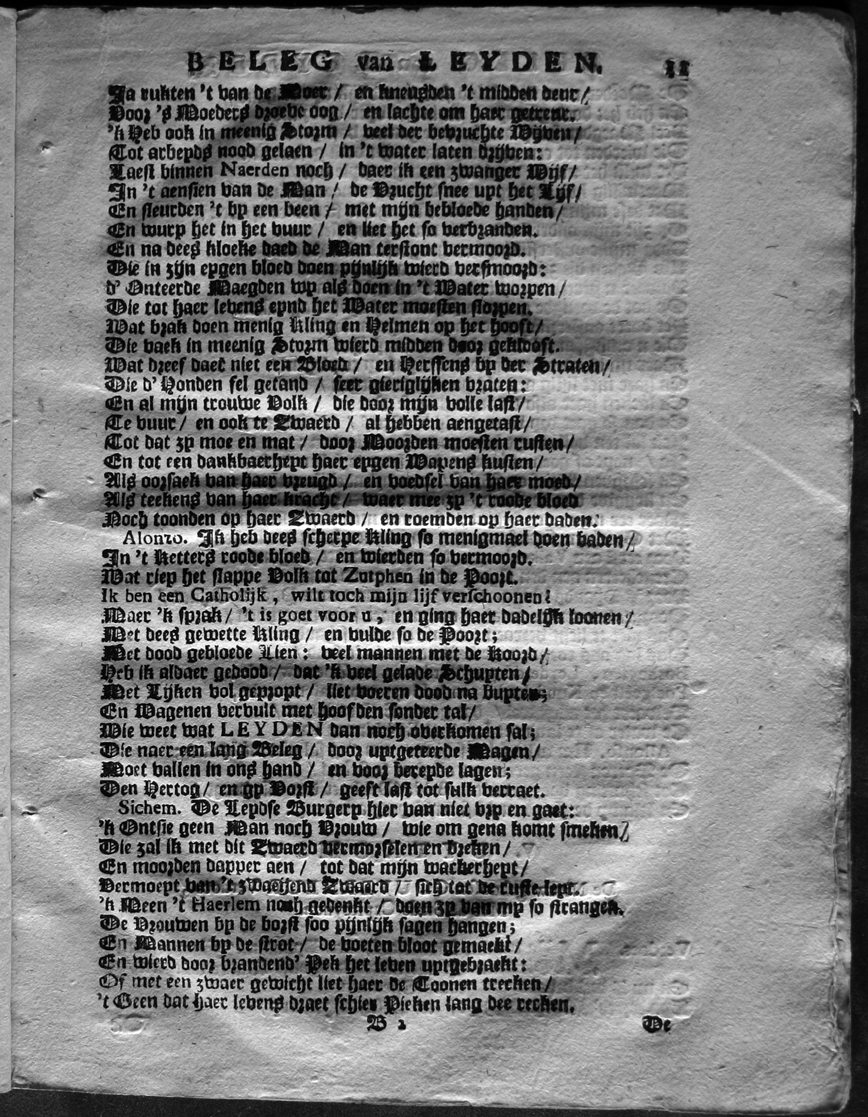 BELEG van LEYDEN. 11
Ja rukten 't van de Moer / en kneusden 't midden deur /
Voor 's Moeders droeve oog / en lachte om haer getreur.
'k Heb ook in meenig Storm / veel der bevruchte Wijven /
Tot arbeyds nood gelaen / in 't water laten drijven:
Laest binnen Naerden noch / daer ik een zwanger Wijf /
In 't aensien van de Man / de Vrucht snee uyt het Lijf /
En sleurden 't by een been / met mijn bebloede handen /
En wurp het in het vuur / en liet het so verbranden.
En na dees kloeke daed de Man terstont vermoord.
Die in zijn eygen bloed doen pijnlijk wierd versmoord:
d' Onteerde Maegden wy als doen in 't Water worpen /
Die tot haer levens eynd het Water moesten slorpen.
Wat brak doen menig Kling en Helmen op het hooft /
Die vaek in meenig Storm wierd midden door geklooft.
Wat dreef daer niet een Bloed / en Herssens by der Straten /
Die d' Honden fel getand / seer gieriglijken vraten:
En al mijn trouwe Volk / die door mijn volle last /
Te vuur / en ook te Zwaerd / al hebben aengetast /
Tot dat zy moe en mat / door Moorden moesten rusten /
En tot een dankbaerheyt haer eygen Wapens kusten /
Als oorsaek van haer vreugd / en voedsel van haer moed /
Als teekens van haer kracht / waer mee zy 't roode bloed
Noch toonden op haer Zwaerd / en roemden op haer daden.
Alonzo. Ik heb dees scherpe Kling so menigmael doen baden /
In 't Ketters roode bloed / en wierden so vermoord.
Wat riep het slappe Volk tot Zutphen in de Poort.
Ik ben een Catholijk, wilt toch mijn lijf verschoonen!
Maer 'k sprak / 't is goet voor u, en ging haer dadelijk loonen /
Met dees gewette Kling / en vulde so de Poort;
Met dood gebloede Lien: veel mannen met de Koord /
Heb ik aldaer gedood / dat 'k veel gelade Schuyten /
Met Lijken vol gepropt / liet voeren dood na buyten;
En Wagenen vervult met hoofden sonder tal /
Wie weet wat LEYDEN dan noch overkomen sal;
Die naer een lang Beleg / door uytgeteerde Magen /
Moet vallen in ons hand / en voor bereyde lagen;
Den Hertog / en gy Vorst / geeft last tot sulk verraet.
Sichem. De Leydse Burgery hier van niet vry en gaet:
'k Ontsie geen Man noch Vrouw / wie om gena komt smeken /
Die zal ik met dit Zwaerd vermorselen en breken /
En moorden dapper aen / tot dat mijn wackerheyt /
Vermoeyt van 't zwaeijend Zwaerd / sich tot de ruste leyt.
'k Meen 't Haerlem noch gedenkt / doen zy van my so strangen.
De Vrouwen by de borst soo pijnlijk sagen hangen;
En Mannen by de strot / de voeten bloot gemaekt /
En wierd door brandend' Pek het leven uytgebraekt:
Of met een zwaer gewicht liet haer de Toonen trecken /
't Geen dat haer levens draet schier Pieken lang dee recken.
B 2 De